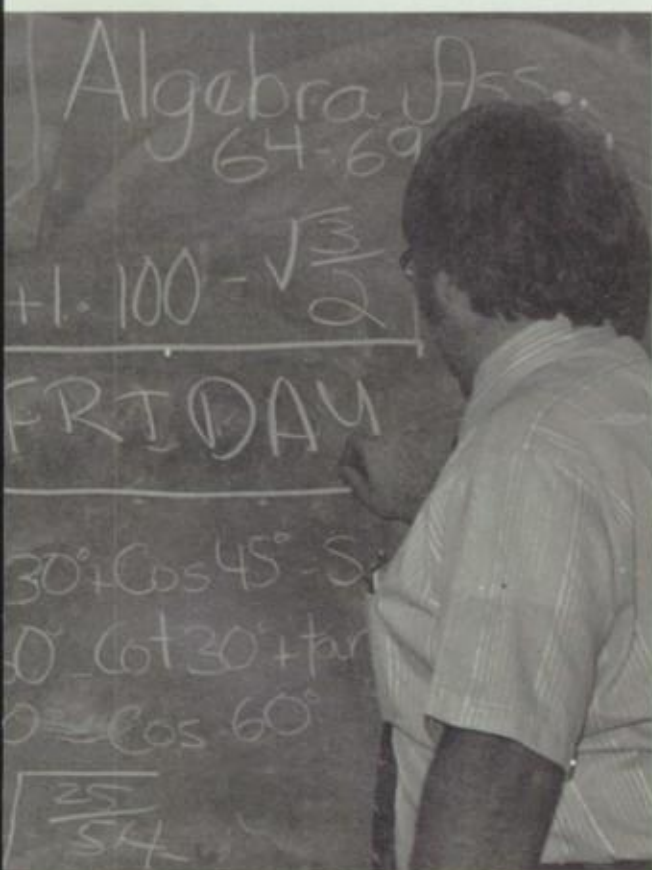 Algebra Ass..
64-69
+1. 100 - √3/2
FRIDAY
30°+Cos 45°-S
0° - Cot 30°+tan
0 Cos 60°
√25/54